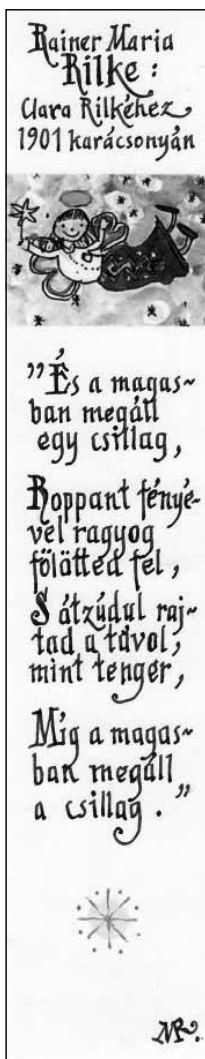 Rainer Maria
Rilke :
Clara Rilkéhez
1901 karácsonyán
"És a magas~
ban megáll
egy csillag,
Roppant fényé-
vel ragyog
fölötted fel,
S átzúdul raj-
tad a távol,
mint tenger,
Míg a magas~
ban megáll
a csillag."
MR.